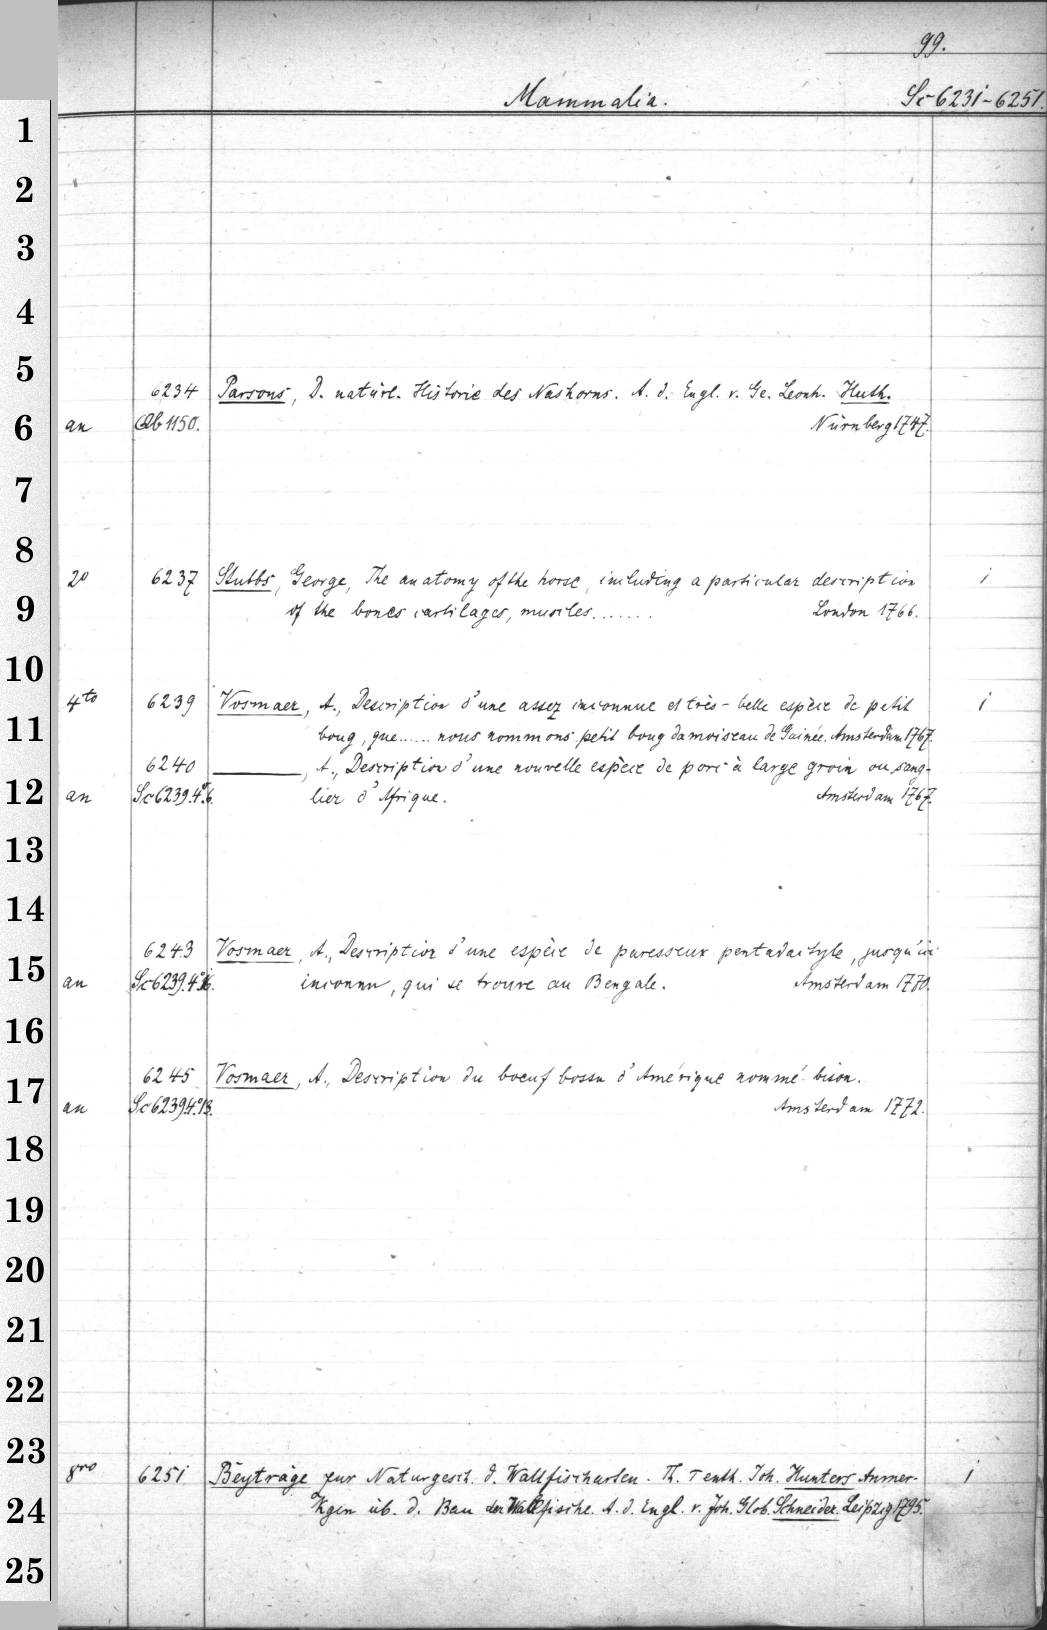 99.
Mammalia. Sc 6231-6251.
1
2
3
4
5
6234 Parsons, D. natürl. Historie des Nashorns. A. d. Engl. v. Ge. Leonh. Huth.
6 an Qb 1150. Nürnberg 1747.
7
8
2o 6237 Stubbs, George, The anatomy of the horse, including a particular description i
9 of the bones cartilages, muscles....... London 1766.
10
4to 6239 Vosmaer, A., Description d'une assez inconnue et très-belle espèce de petit i
11 boug, que...... nous nommons petit boug damoiseau de Guinée. Amsterdam 1767.
6240 ———, A., Description d'une nouvelle espèce de porc à large groin ou sang-
12 an Sc 6239.4o.6. lier d'Afrique. Amsterdam 1767.
13
14
6243 Vosmaer, A., Description d'une espèce de paresseux pentadactyle, jusqu'ici
15 an Sc 6239.4o. inconnu, qui se trouve au Bengale. Amsterdam 1770.
16
6245 Vosmaer, A., Description du boeuf bossu d'Amérique nommé bison.
17 an Sc 6239.4o.13. Amsterdam 1772.
18
19
20
21
22
23
8vo 6251 Beyträge zur Naturgesch. d. Wallfischarten. Th. 1 enth. Joh. Hunters Anmer- i
24 kgen üb. d. Bau der Wallfische. A. d. Engl. v. Joh. Glob. Schneider. Leipzig 1795.
25